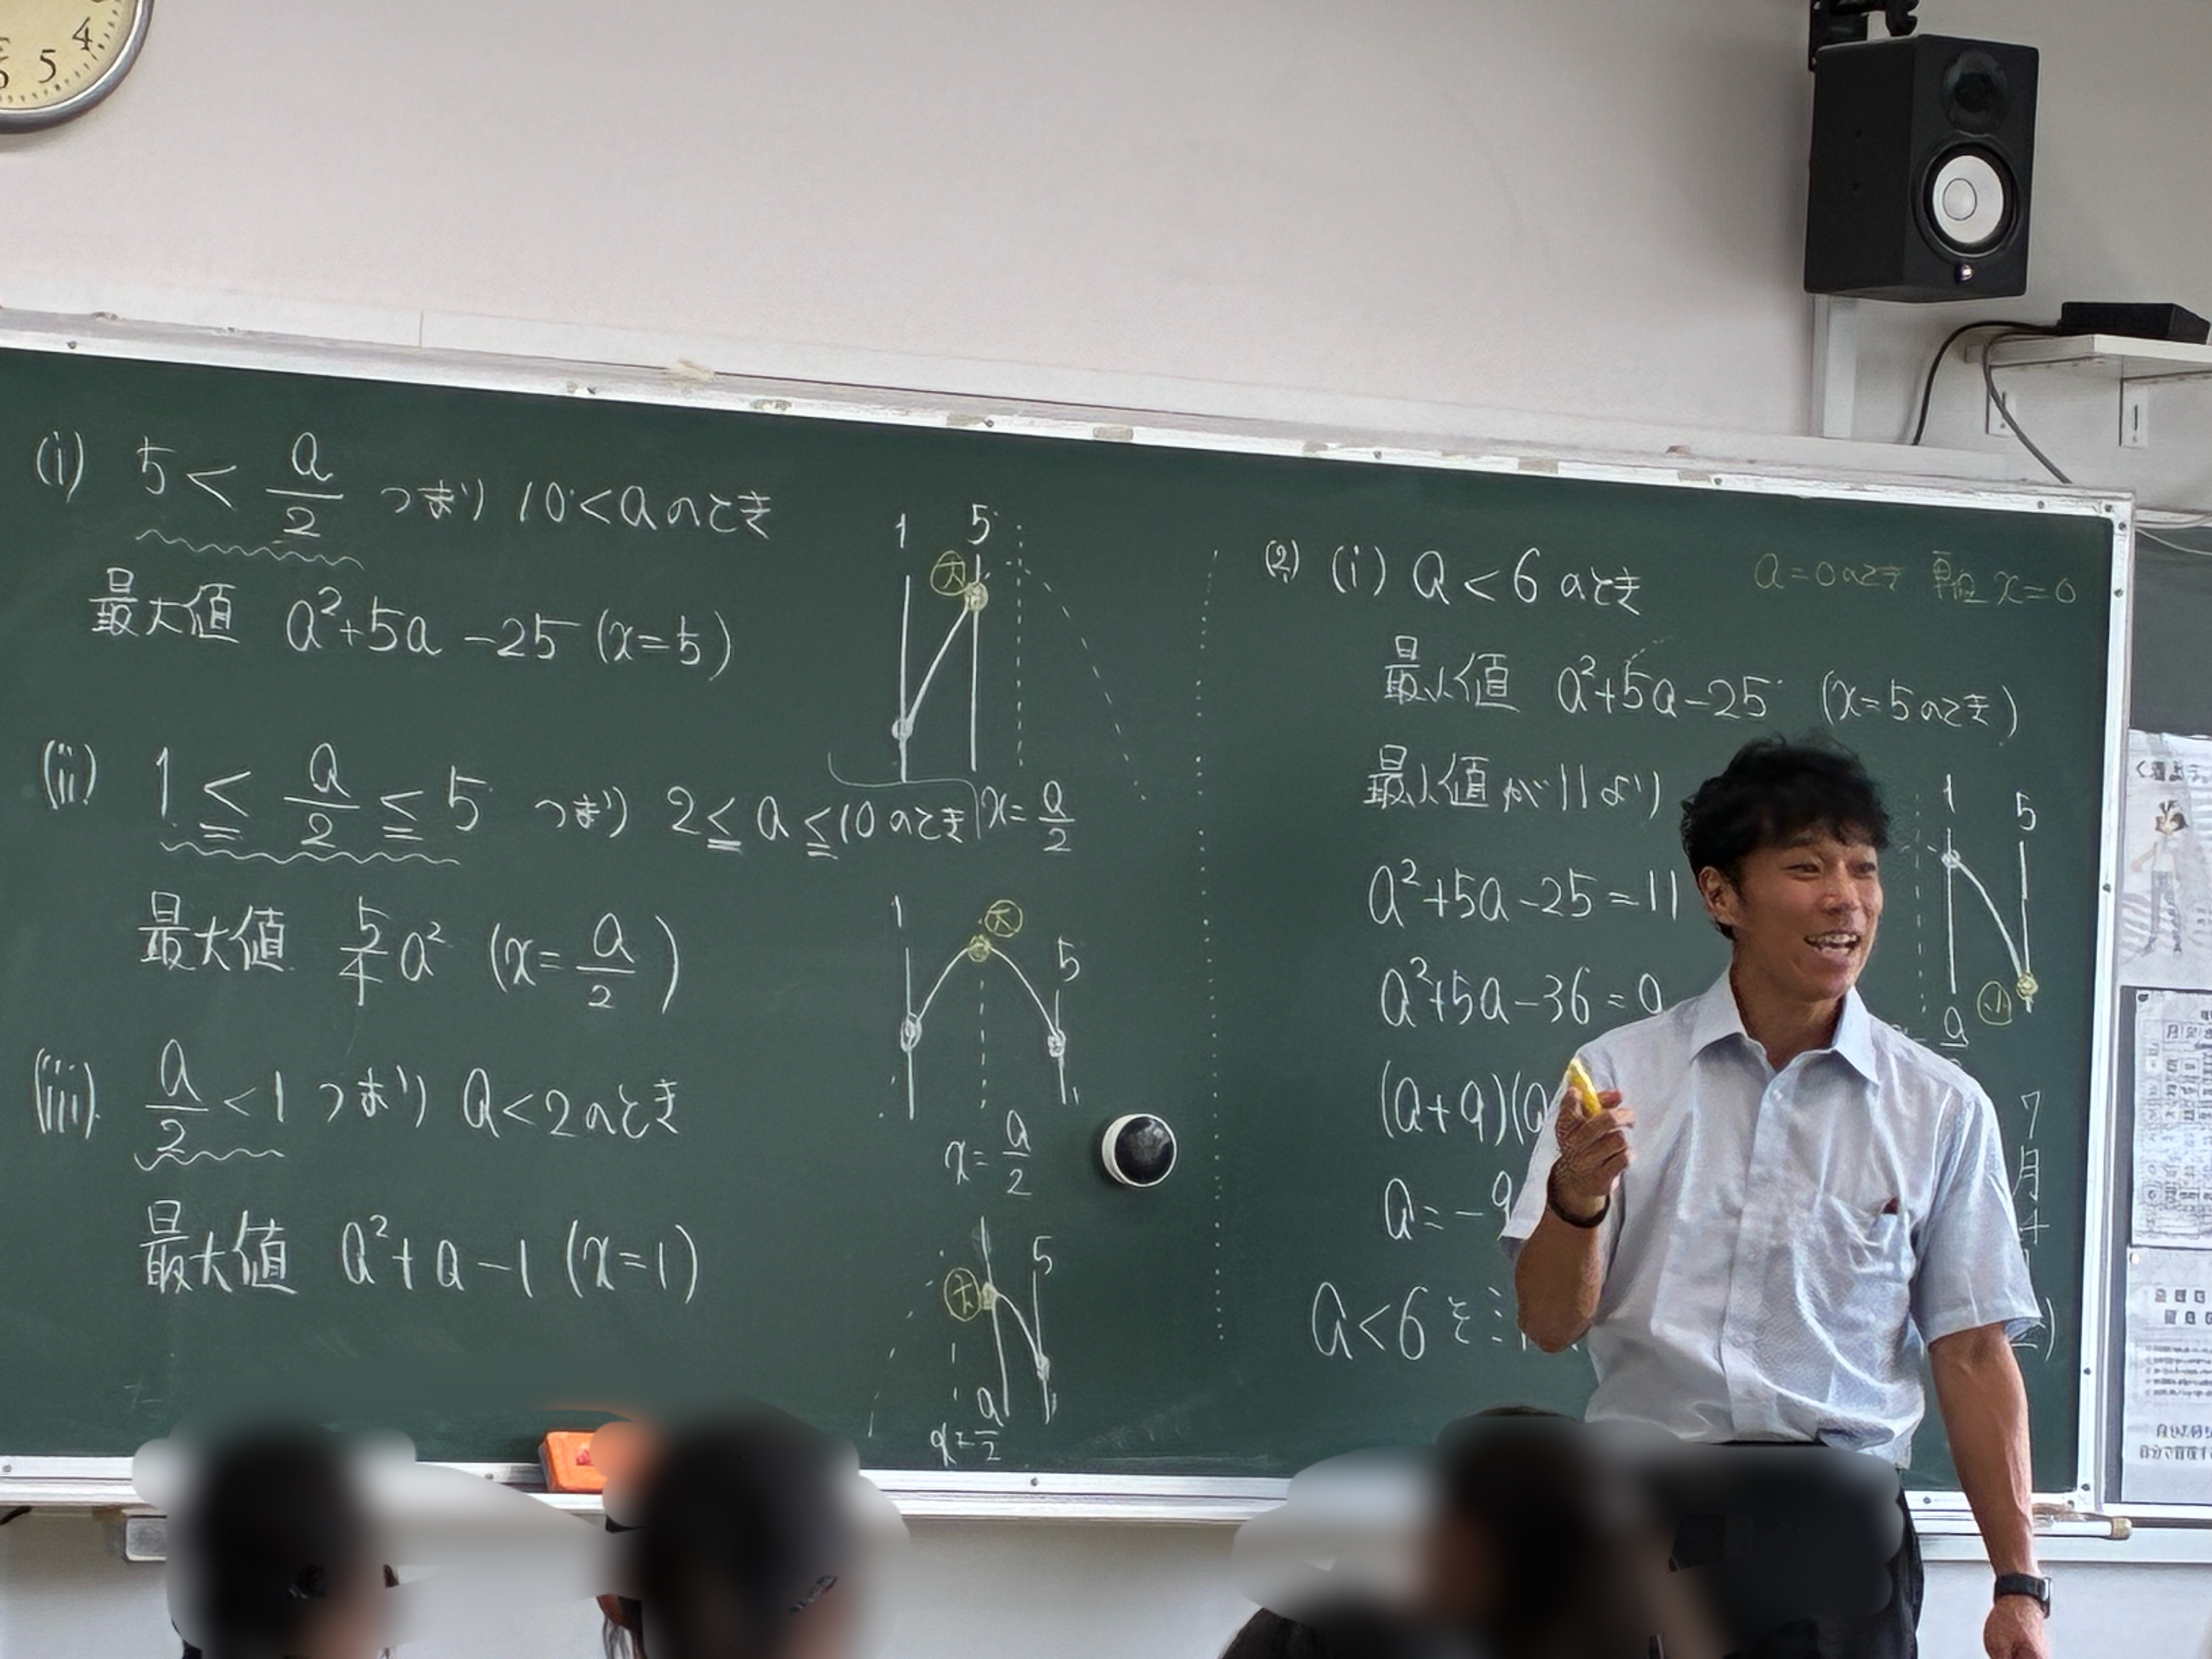 4
5
(i) 5 < a/2 つまり 10 < a のとき
最大値 a²+5a-25 (x=5)
1 5
大
x = a/2
(ii) 1 ≦ a/2 ≦ 5 つまり 2 ≦ a ≦ 10 のとき
最大値 5/4 a² (x = a/2)
1 5
大
x = a/2
(iii) a/2 < 1 つまり a < 2 のとき
最大値 a²+a-1 (x=1)
5
大
x = a/2
(2) (i) a < 6 のとき
a=0のとき 軸 x=0
最小値 a²+5a-25 (x=5のとき)
最小値が11より
a²+5a-25 = 11
a²+5a-36 = 0
(a+9)(a
a = -9
a < 6 を
1 5
小
a
7月4